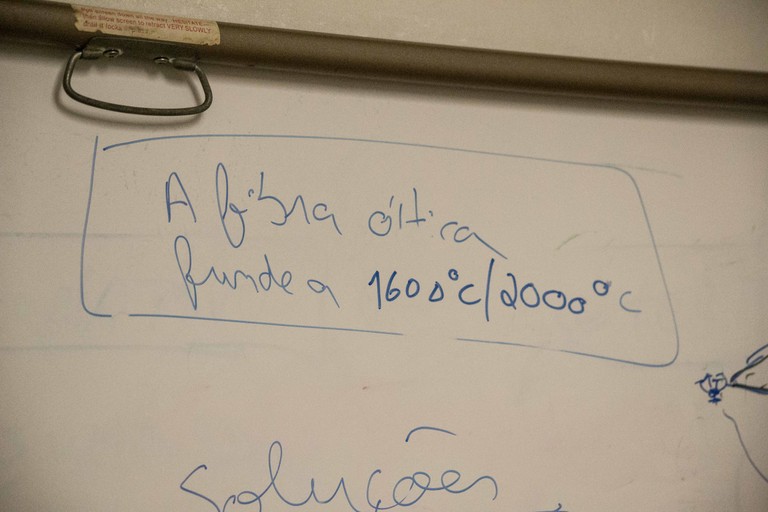 then allow screen to retract VERY SLOWLY
A fibra ótica
funde a 1600°C/2000°C
Soluções